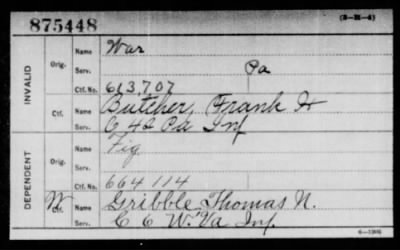 875448 (3-31-4)
INVALID
Orig. Name War
Serv. Pa
Ctf. No. 613,707
Ctf. Name Butcher, Frank H
Serv. C 42 Pa Inf
DEPENDENT
Orig. Name Fig
Serv.
Ctf. No. 664 114
W Ctf. Name Gribble, Thomas N.
Serv. C 6 W. Va Inf.